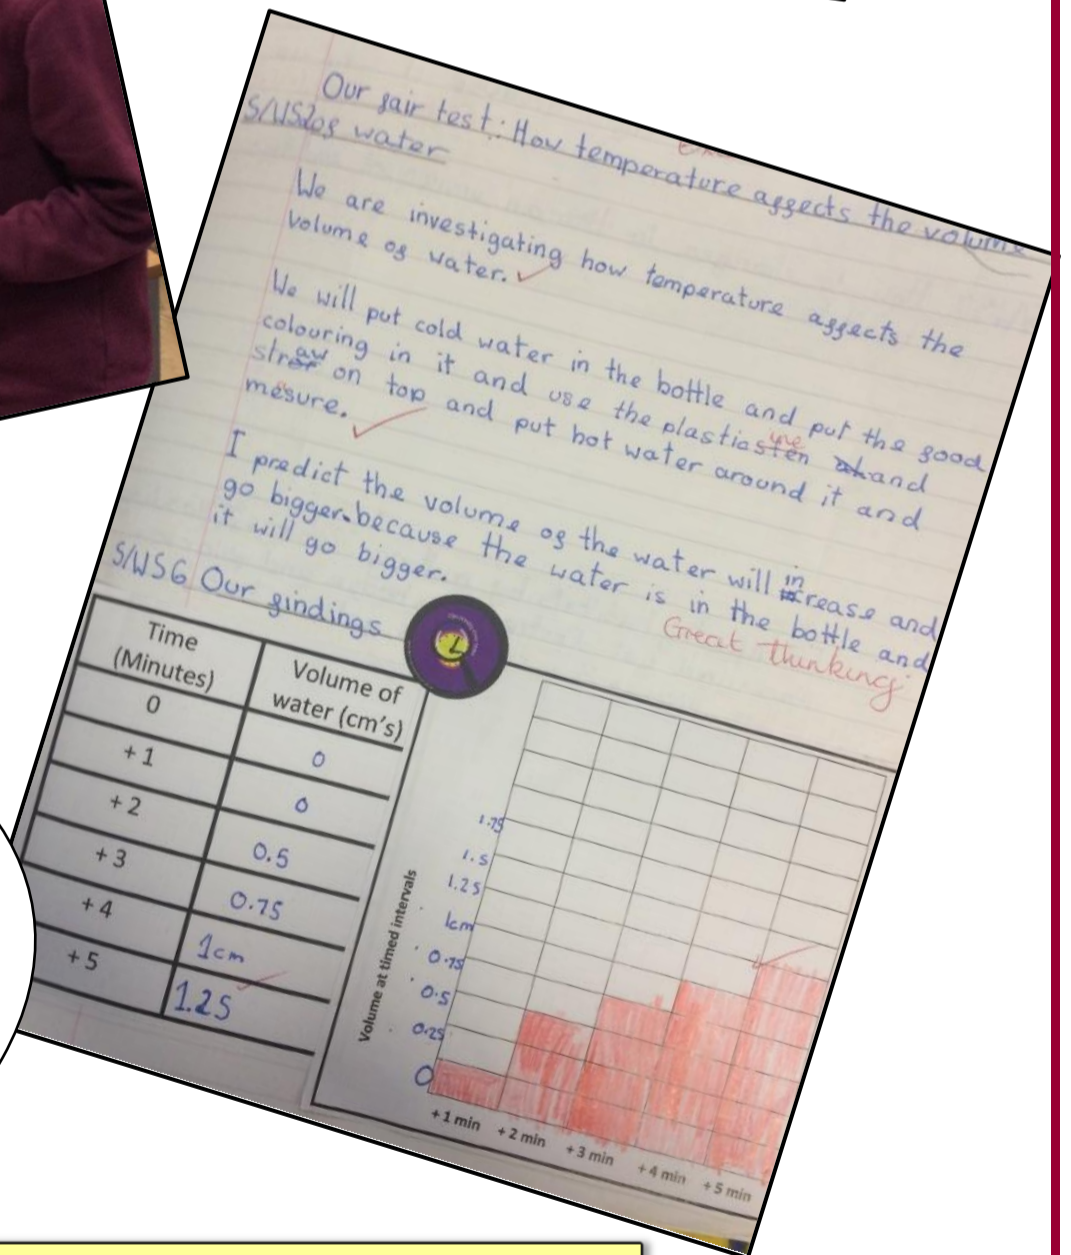 Our fair test: How temperature affects the volume
S/WS2 of water
We are investigating how temperature affects the
volume of water.
We will put cold water in the bottle and put the good
colouring in it and use the plasticine and
straw on top and put hot water around it and
mesure.
I predict the volume of the water will increase and
go bigger because the water is in the bottle and
it will go bigger.
Great thinking
S/WS6 Our findings
Time (Minutes)
Volume of water (cm's)
0 0
+ 1 0
+ 2 0.5
+ 3 0.75
+ 4 1cm
+ 5 1.25
Volume at timed intervals
1.75
1.5
1.25
1cm
0.75
0.5
0.25
0
+1 min +2 min +3 min +4 min +5 min